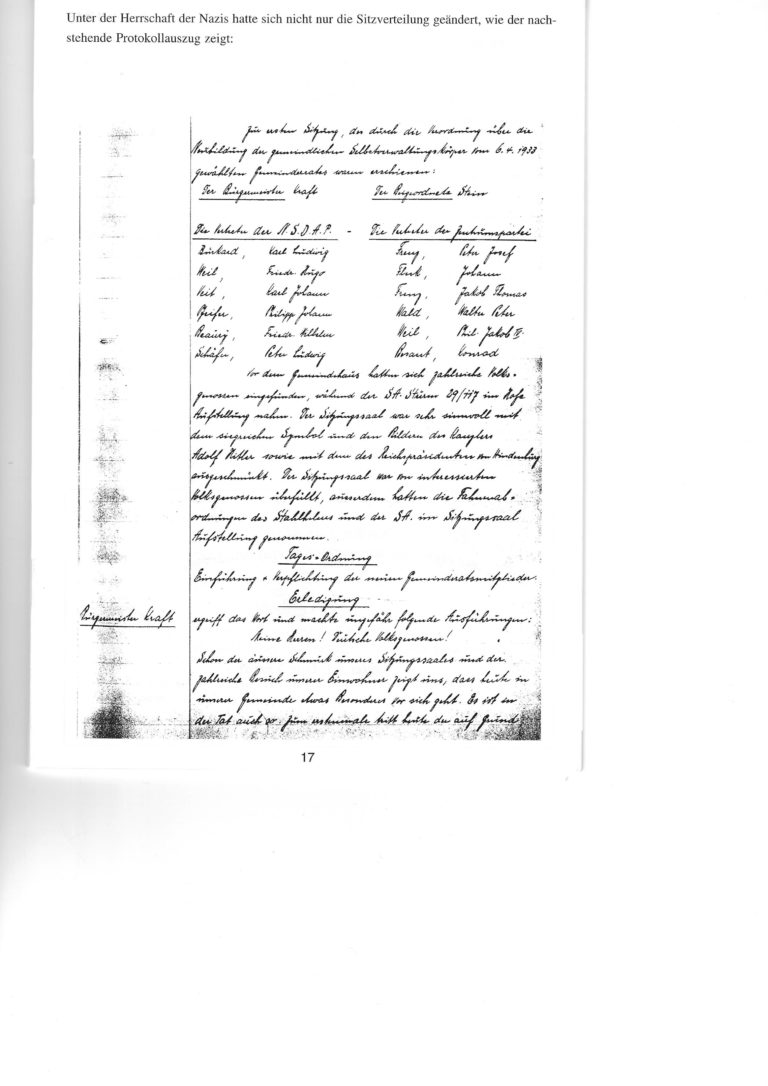 Unter der Herrschaft der Nazis hatte sich nicht nur die Sitzverteilung geändert, wie der nach-
stehende Protokollauszug zeigt:
Zur ersten Sitzung, des durch die Verordnung über die
Neubildung der gemeindlichen Selbstverwaltungskörper vom 6.4.1933
gewählten Gemeinderates waren erschienen:
Der Bürgermeister Kraft Der Beigeordnete Stein
Die Vertreter der N.S.D.A.P. - Die Vertreter der Zentrumspartei
Burkard, Karl Ludwig Freng, Peter Josef
Weil, Friedr. Hugo Flink, Johann
Veit, Karl Johann Freng, Jakob Thomas
Pfeifer, Philipp Johann Wald, Walter Peter
Friedr. Wilhelm Weil, Phil. Jakob
Schäfer, Peter Ludwig Konrad
Vor dem Gemeindehaus hatten sich zahlreiche Volks-
genossen eingefunden, während der SA. Sturm 29/117 im Hofe
Aufstellung nahm. Der Sitzungssaal war sehr sinnvoll mit
dem siegreichen Symbol und den Bildern des Kanzlers
Adolf Hitler sowie mit dem des Reichspräsidenten von Hindenburg
ausgeschmückt. Der Sitzungssaal war von interessierten
Volksgenossen überfüllt, ausserdem hatten die Fahnenab-
ordnungen des Stahlhelms und der SA. im Sitzungssaal
Aufstellung genommen.
Tages-Ordnung
Einführung + Verpflichtung der neuen Gemeinderatsmitglieder.
Erledigung
Bürgermeister Kraft ergriff das Wort und machte ungefähr folgende Ausführungen:
Meine Herren! Deutsche Volksgenossen!
Schon der äussere Schmuck unseres Sitzungssaales und der
zahlreiche Besuch unserer Einwohner zeigt uns, dass heute in
unserer Gemeinde etwas Besonderes vor sich geht. Es ist in
der Tat auch so. Zum erstenmale tritt heute der auf Grund
17